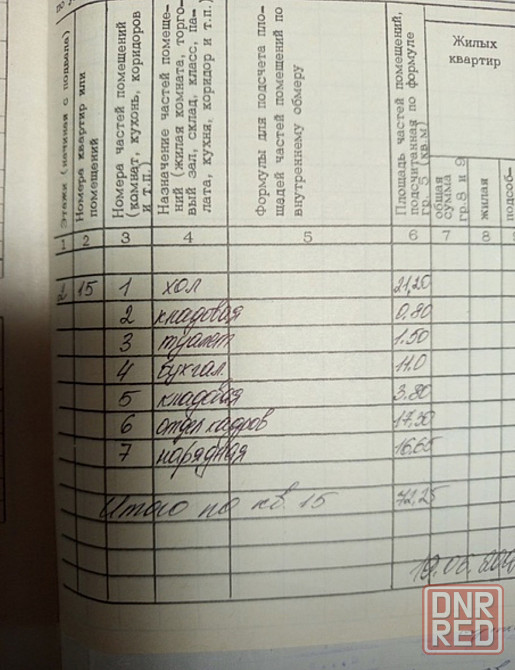 Этажи (начиная с подвала)
Номера квартир или
помещений
Номера частей помещений
(комнат, кухонь, коридоров
и т.п.)
Назначение частей помеще-
ний (жилая комната, торго-
вый зал, склад, класс, па-
лата, кухня, коридор и т.п.)
Формулы для подсчета пло-
щадей частей помещений по
внутреннему обмеру
Площадь частей помещений,
подсчитанная по формуле
гр. 5 (кв м)
Жилых
квартир
общая
сумма
гр.8 и 9
жилая
подсоб-
1 2 3 4 5 6 7 8
1 15 1 хол 21,20
2 кладовая 0.80
3 туалет 1.50
4 бухгал. 11.0
5 кладовая 3.80
6 отдел кадров 17,30
7 нарядная 16,65
Итого по кв. 15 72,25
DNR
RED